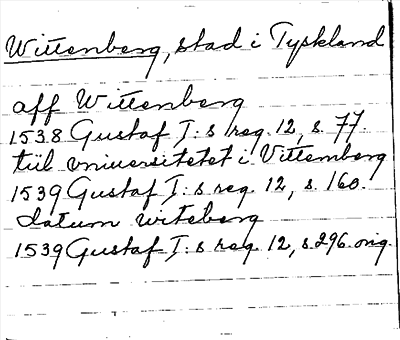 Wittenberg, stad i Tyskland
aff Wittenberg
1538 Gustaf I:s reg. 12, s. 77.
tiil vniuersitetet i Vittemberg
1539 Gustaf I:s reg. 12, s. 160.
datum witeberg
1539 Gustaf I:s reg. 12, s. 296 orig.